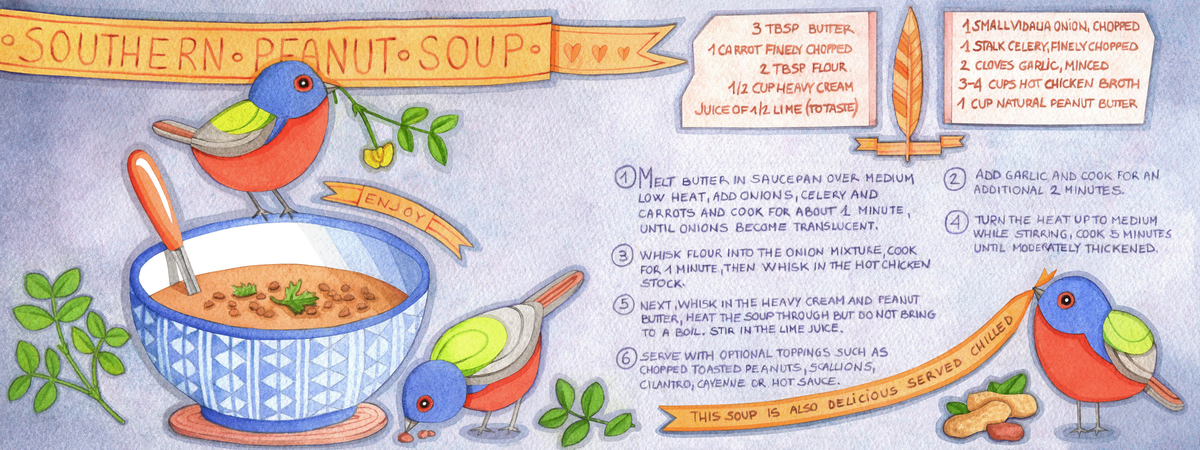 SOUTHERN • PEANUT • SOUP •
3 TBSP BUTTER
1 CARROT FINELY CHOPPED
2 TBSP FLOUR
1/2 CUP HEAVY CREAM
JUICE OF 1/2 LIME (TO TASTE)
1 SMALL VIDALIA ONION, CHOPPED
1 STALK CELERY, FINELY CHOPPED
2 CLOVES GARLIC, MINCED
3-4 CUPS HOT CHICKEN BROTH
1 CUP NATURAL PEANUT BUTTER
ENJOY
1 MELT BUTTER IN SAUCEPAN OVER MEDIUM
LOW HEAT, ADD ONIONS, CELERY AND
CARROTS AND COOK FOR ABOUT 1 MINUTE,
UNTIL ONIONS BECOME TRANSLUCENT.
2 ADD GARLIC AND COOK FOR AN
ADDITIONAL 2 MINUTES.
3 WHISK FLOUR INTO THE ONION MIXTURE, COOK
FOR 1 MINUTE, THEN WHISK IN THE HOT CHICKEN
STOCK.
4 TURN THE HEAT UP TO MEDIUM
WHILE STIRRING, COOK 5 MINUTES
UNTIL MODERATELY THICKENED.
5 NEXT, WHISK IN THE HEAVY CREAM AND PEANUT
BUTTER, HEAT THE SOUP THROUGH BUT DO NOT BRING
TO A BOIL. STIR IN THE LIME JUICE.
6 SERVE WITH OPTIONAL TOPPINGS SUCH AS
CHOPPED TOASTED PEANUTS, SCALLIONS,
CILANTRO, CAYENNE OR HOT SAUCE.
THIS SOUP IS ALSO DELICIOUS SERVED CHILLED